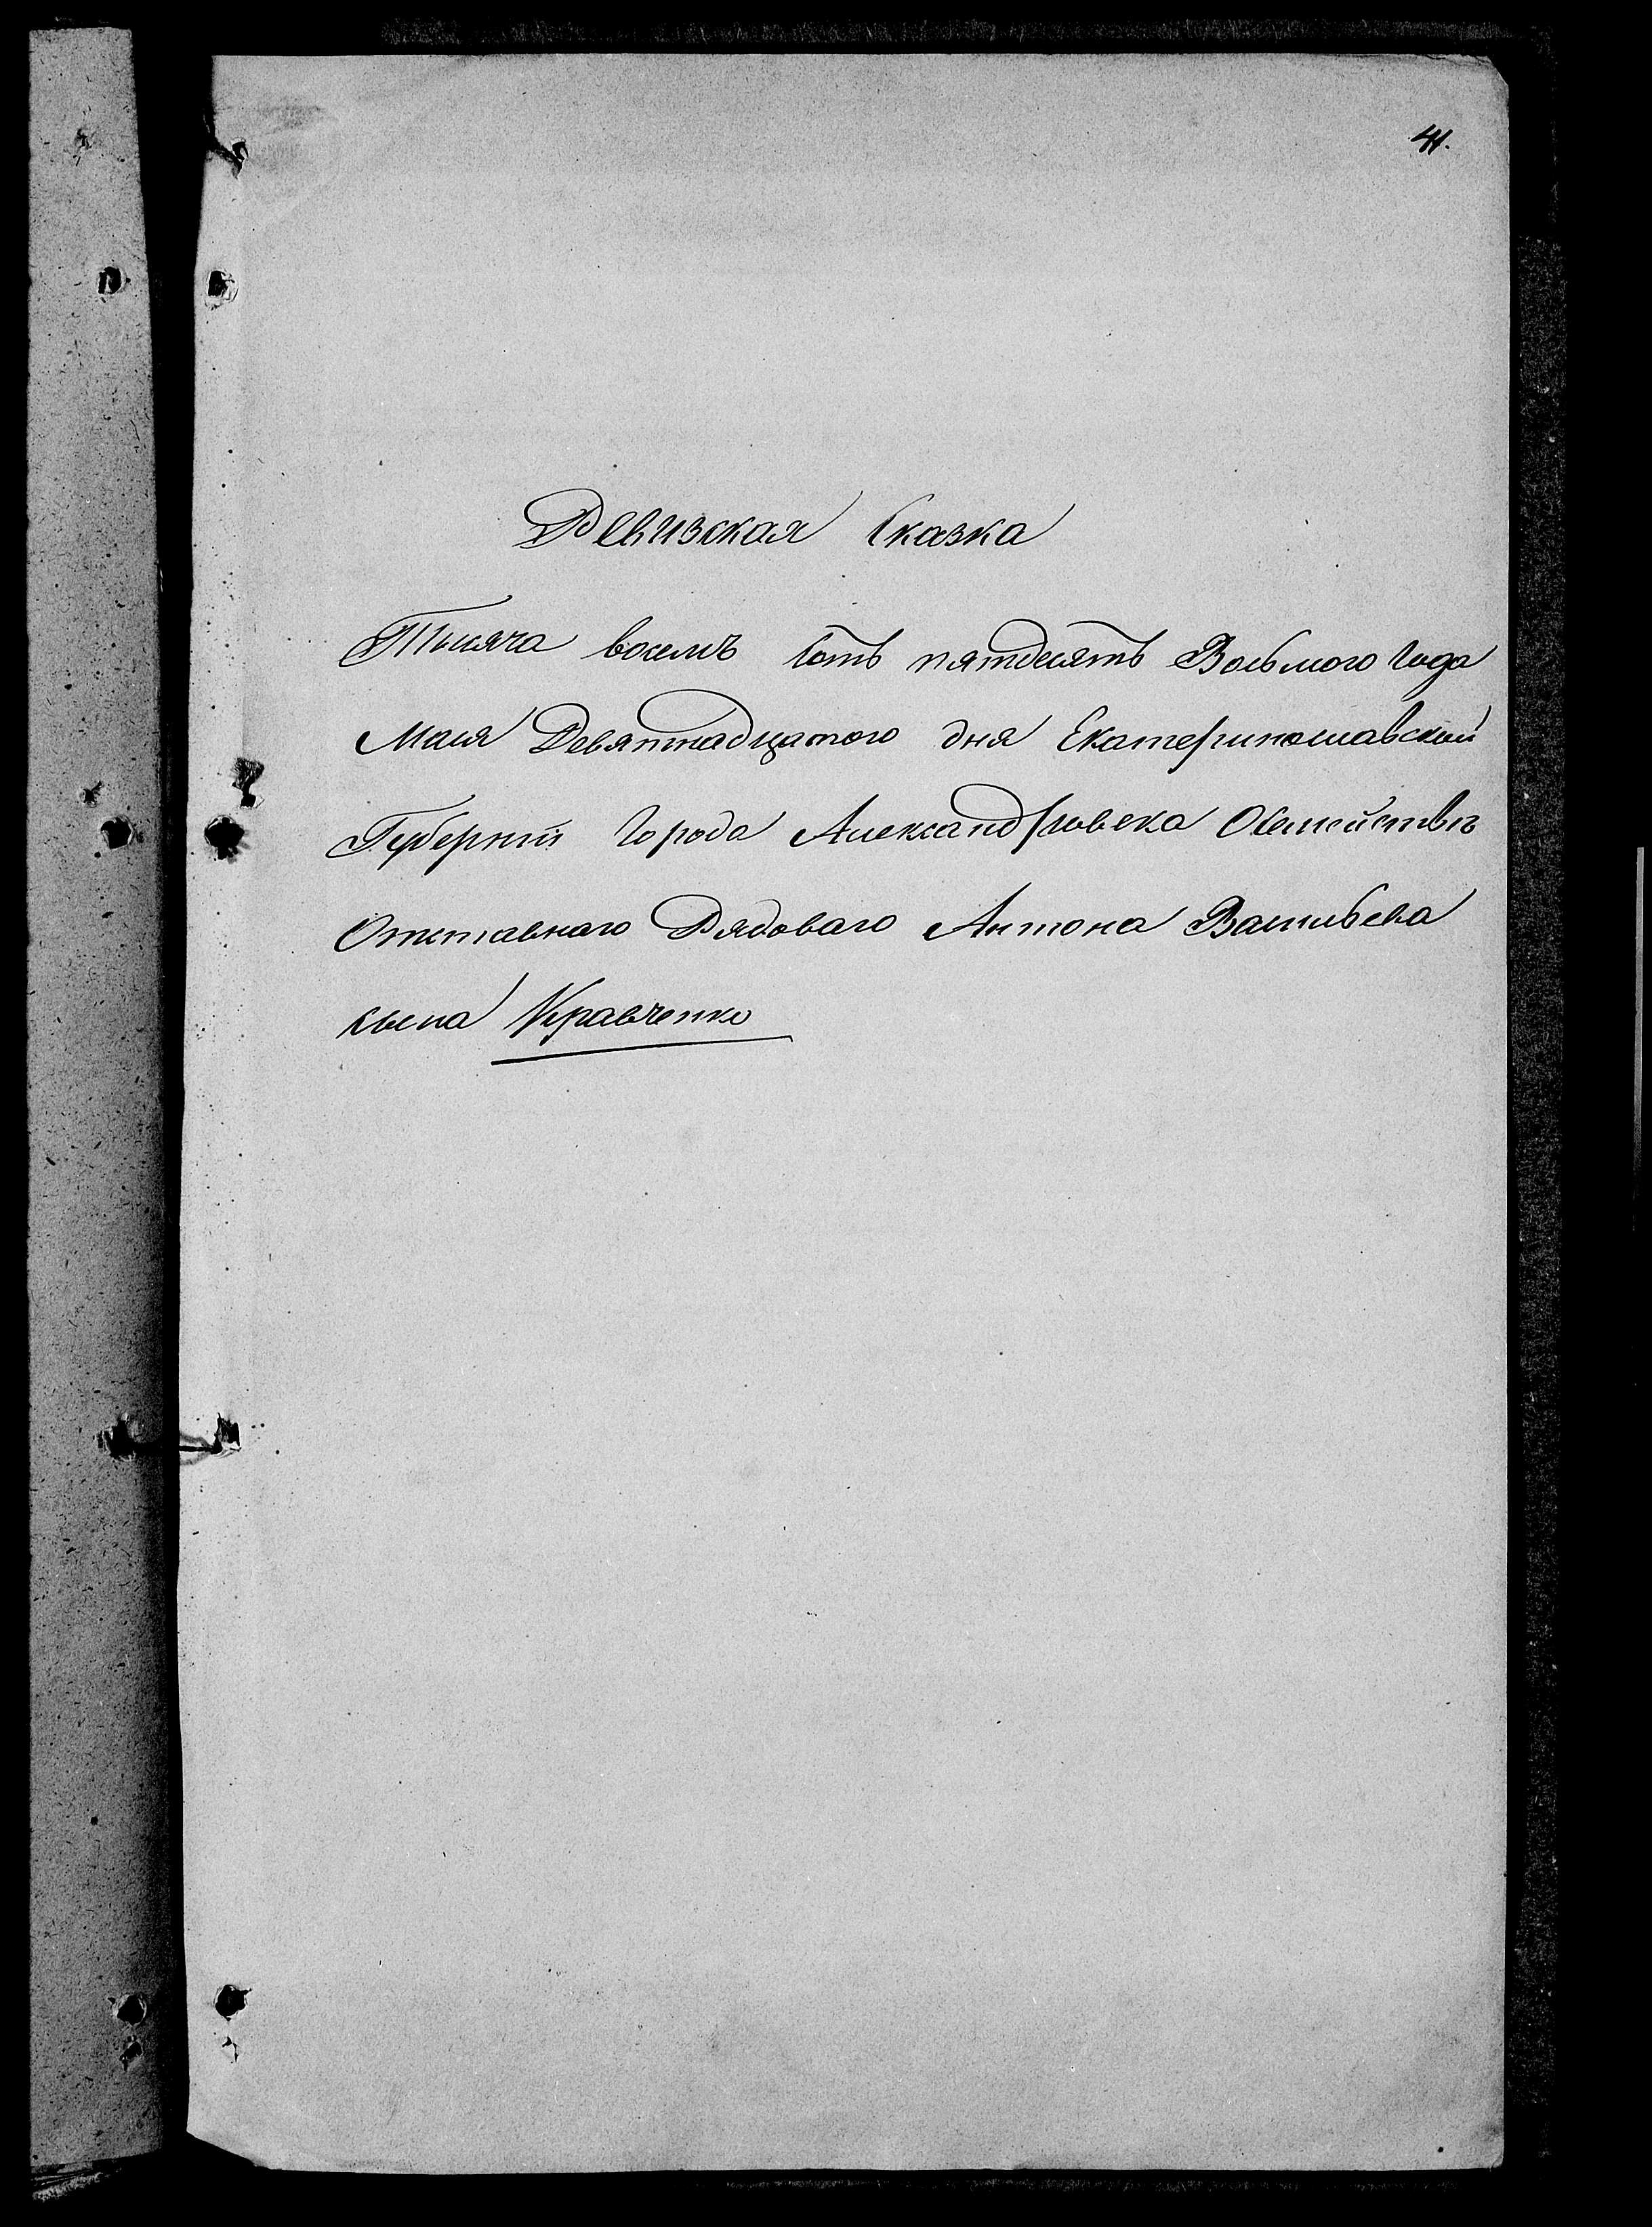 41.
Ревизская Сказка
Тысяча восемь сотъ пятдесятъ Восьмого Года
Маия Девятнадцатого дня Екатеринославской
Губернии Города Александровска О семействѣ
Отставнаго Рядоваго Антона Васильева
сына Кравченко